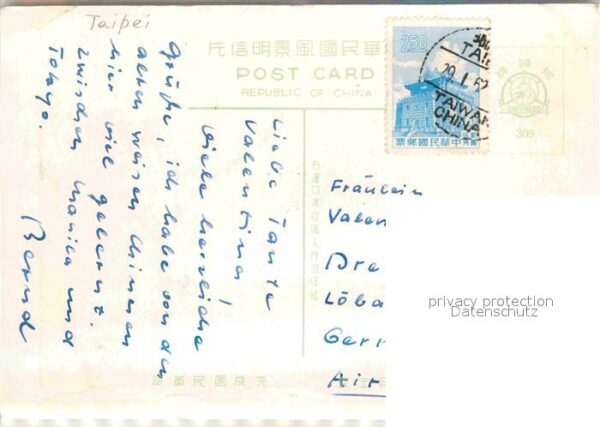 Taipei
中華民國風景明信片
POST CARD
REPUBLIC OF CHINA
2.50
TAIWAN
CHINA
中華民國郵票
309
Liebe Tante
Valentina!
Viele herzliche
Grüße, ich habe von den
alten weisen Chinesen
hier viel gelernt.
Zwischen Manila und
Tokyo.
Bernd
Fräulein
Valen
Dre
Löba
Gerr
Air
privacy protection
Datenschutz